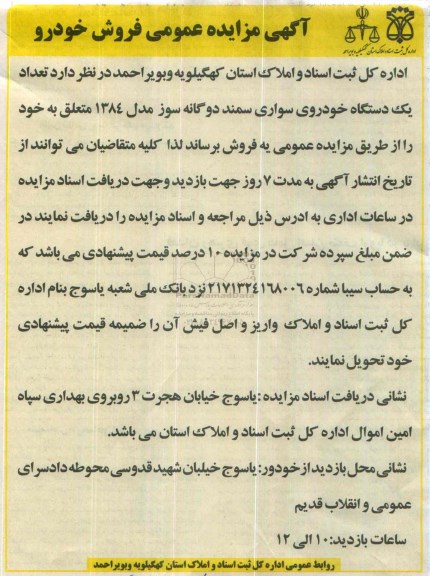 آگهی مزایده عمومی فروش خودرو
اداره کل ثبت اسناد و املاک استان کهگیلویه وبویراحمد در نظر دارد تعداد
یک دستگاه خودروی سواری سمند دوگانه سوز مدل ۱۳۸۴ متعلق به خود
را از طریق مزایده عمومی به فروش برساند لذا کلیه متقاضیان می توانند از
تاریخ انتشار آگهی به مدت ۷ روز جهت بازدید وجهت دریافت اسناد مزایده
در ساعات اداری به ادرس ذیل مراجعه و اسناد مزایده را دریافت نمایند در
ضمن مبلغ سپرده شرکت در مزایده ۱۰ درصد قیمت پیشنهادی می باشد که
به حساب سیبا شماره ۲۱۷۱۳۲۴۱۶۸۰۰۶ نزد بانک ملی شعبه یاسوج بنام اداره
کل ثبت اسناد و املاک واریز و اصل فیش آن را ضمیمه قیمت پیشنهادی
خود تحویل نمایند.
نشانی دریافت اسناد مزایده :یاسوج خیابان هجرت ۳ روبروی بهداری سپاه
امین اموال اداره کل ثبت اسناد و املاک استان می باشد.
نشانی محل بازدید از خودور: یاسوج خیلبان شهید قدوسی محوطه دادسرای
عمومی و انقلاب قدیم
ساعات بازدید: ۱۰ الی ۱۲
روابط عمومی اداره کل ثبت اسناد و املاک استان کهگیلویه وبویراحمد